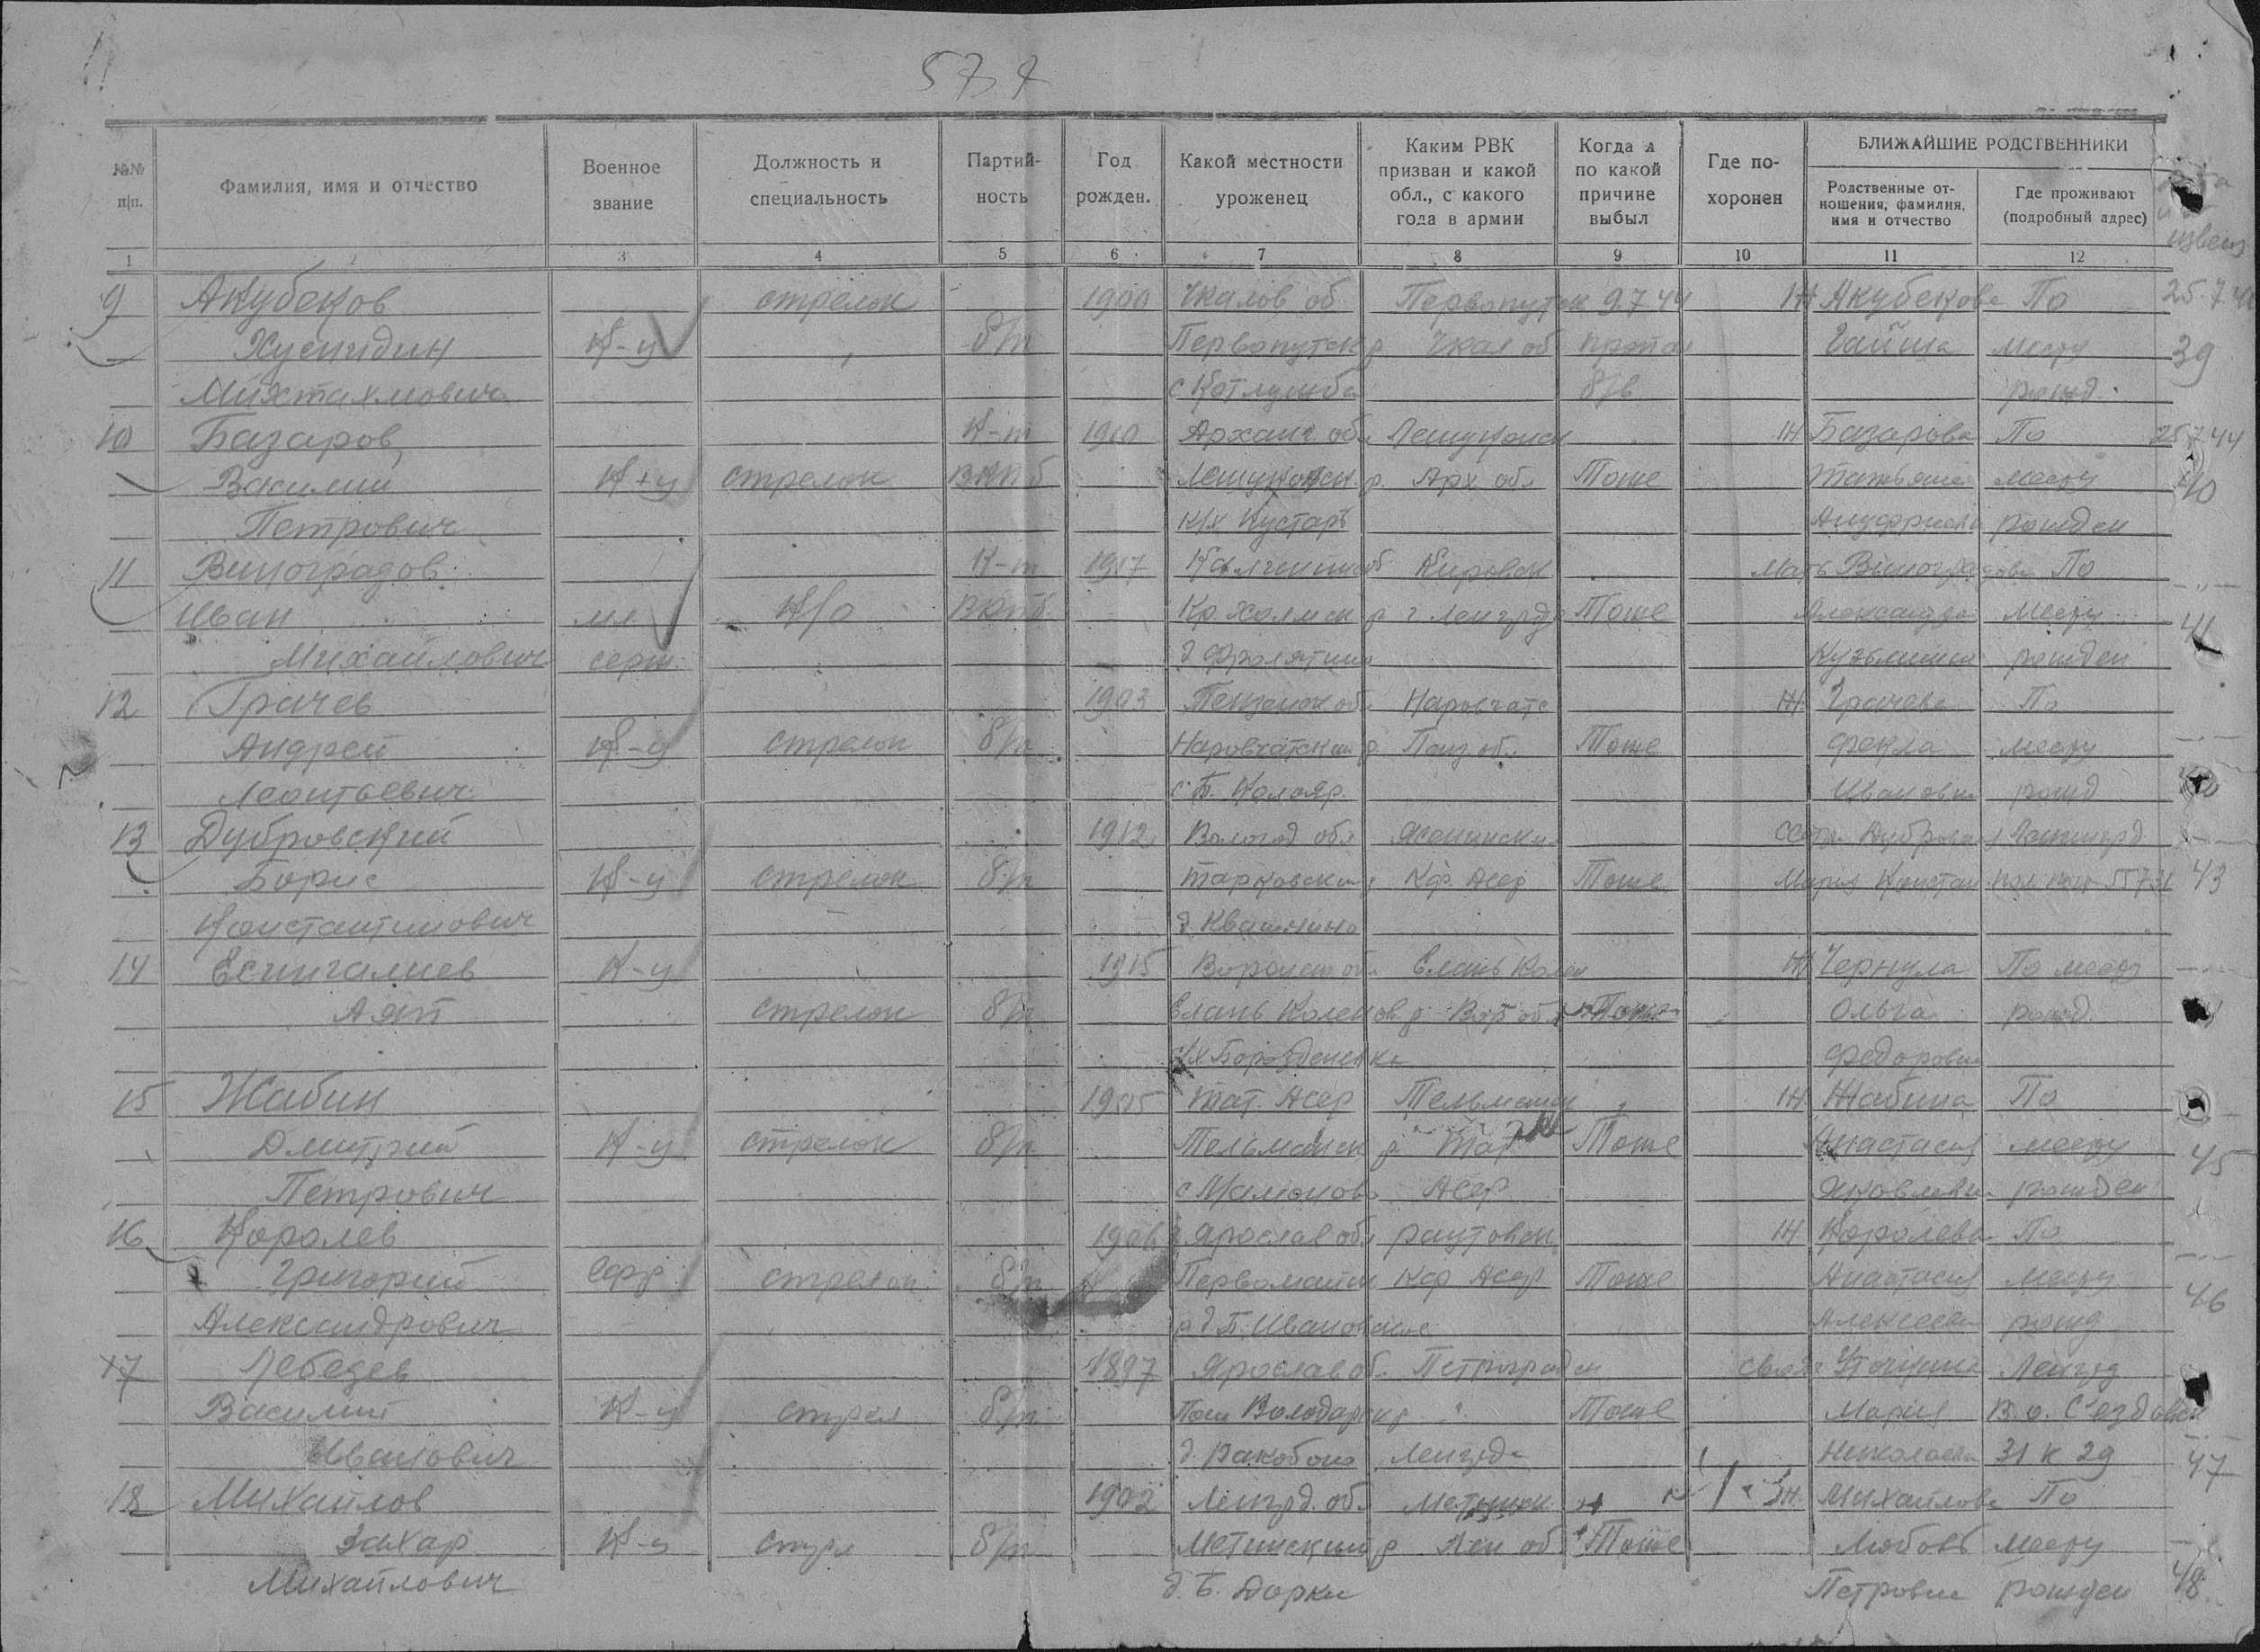 57 7
№№ п|п.
Фамилия, имя и отчество
Военное звание
Должность и специальность
Партий- ность
Год рожден.
Какой местности уроженец
Каким РВК призван и какой обл., с какого года в армии
Когда и по какой причине выбыл
Где по- хоронен
БЛИЖАЙШИЕ РОДСТВЕННИКИ
Родственные от- ношения, фамилия, имя и отчество
Где проживают (подробный адрес)
извещ
1 2 3 4 5 6 7 8 9 10 11 12
9 Акубеков стрелок 1900 Чкалов об 9.7.44 Ж Акубекова По 25.7.44
Хуснидин К-ц б/п р Чкал об пропал Гайша месту 39
б/в рожд.
10 Базаров К-т 1910 Арханг. обл Лешуконск Ж Базарова По 25.7.44
Василий К-ц стрелок ВКПб Лешуконск. р. Арх обл Тоже Татьяна месту 40
Петрович к/х Кустарь рожден
11 Виноградов К-т 1917 Кировск Мать Виноградова По -"-
Иван мл К/о ВКПб Кр. Холмск р г Ленгрда Тоже Александра месту 41
Михайлович серж д Фролятино Кузьминич рожден
12 Грачев 1903 Пензенск обл Наровчатс Ж Грачева По
Андрей К-ц стрелок б/п Наровчатский р. Пенз обл Тоже Фекла месту
Леонтьевич с Б. Колояр. Ивановна рожд
13 Дубровский 1912 Вологод обл Ленингрд
Борис К-ц стрелок б/п Кф Асср Тоже Мария Констан 43
Константинович д. Квашнино
14 Есингалиев К-ц 1915 Воронеж обл Елань Колен Ж Чернула По месту
Аяп стрелок б/п Елань Коленов р. Вор обл Тоже Ольга рожд.
Федоровна
15 Жабин 1905 Тат. Асср Тельманск Ж Жабина По
Дмитрий К-ц стрелок б/п Тельманск р Тат Тоже Анастасия месту 45
Петрович с Мамоново Асср Яковлевна рожден
16 Королев 1906 Ярослав обл раутовск Ж Королева По
Григорий стрелок б/п Первомайск Кф Асср Тоже Анастасия месту 46
Александрович р д П. Ивановское Алексеевна рожд
17 Лебедев 1897 Ярослав об. Петроградск Ленгрд
Василий К-ц стрел б/п Пош Володарск р " Тоже Мария В. о. С'ездовск
Иванович Ленгрда Николаевна 31 к 29 47
18 Михайлов 1902 Ленгрд. обл Ж Михайлова По
Захар К-ц стрл б/п р Лен об. Тоже Любовь месту
Михайлович д. Б. Дорки Петровна рожден 48